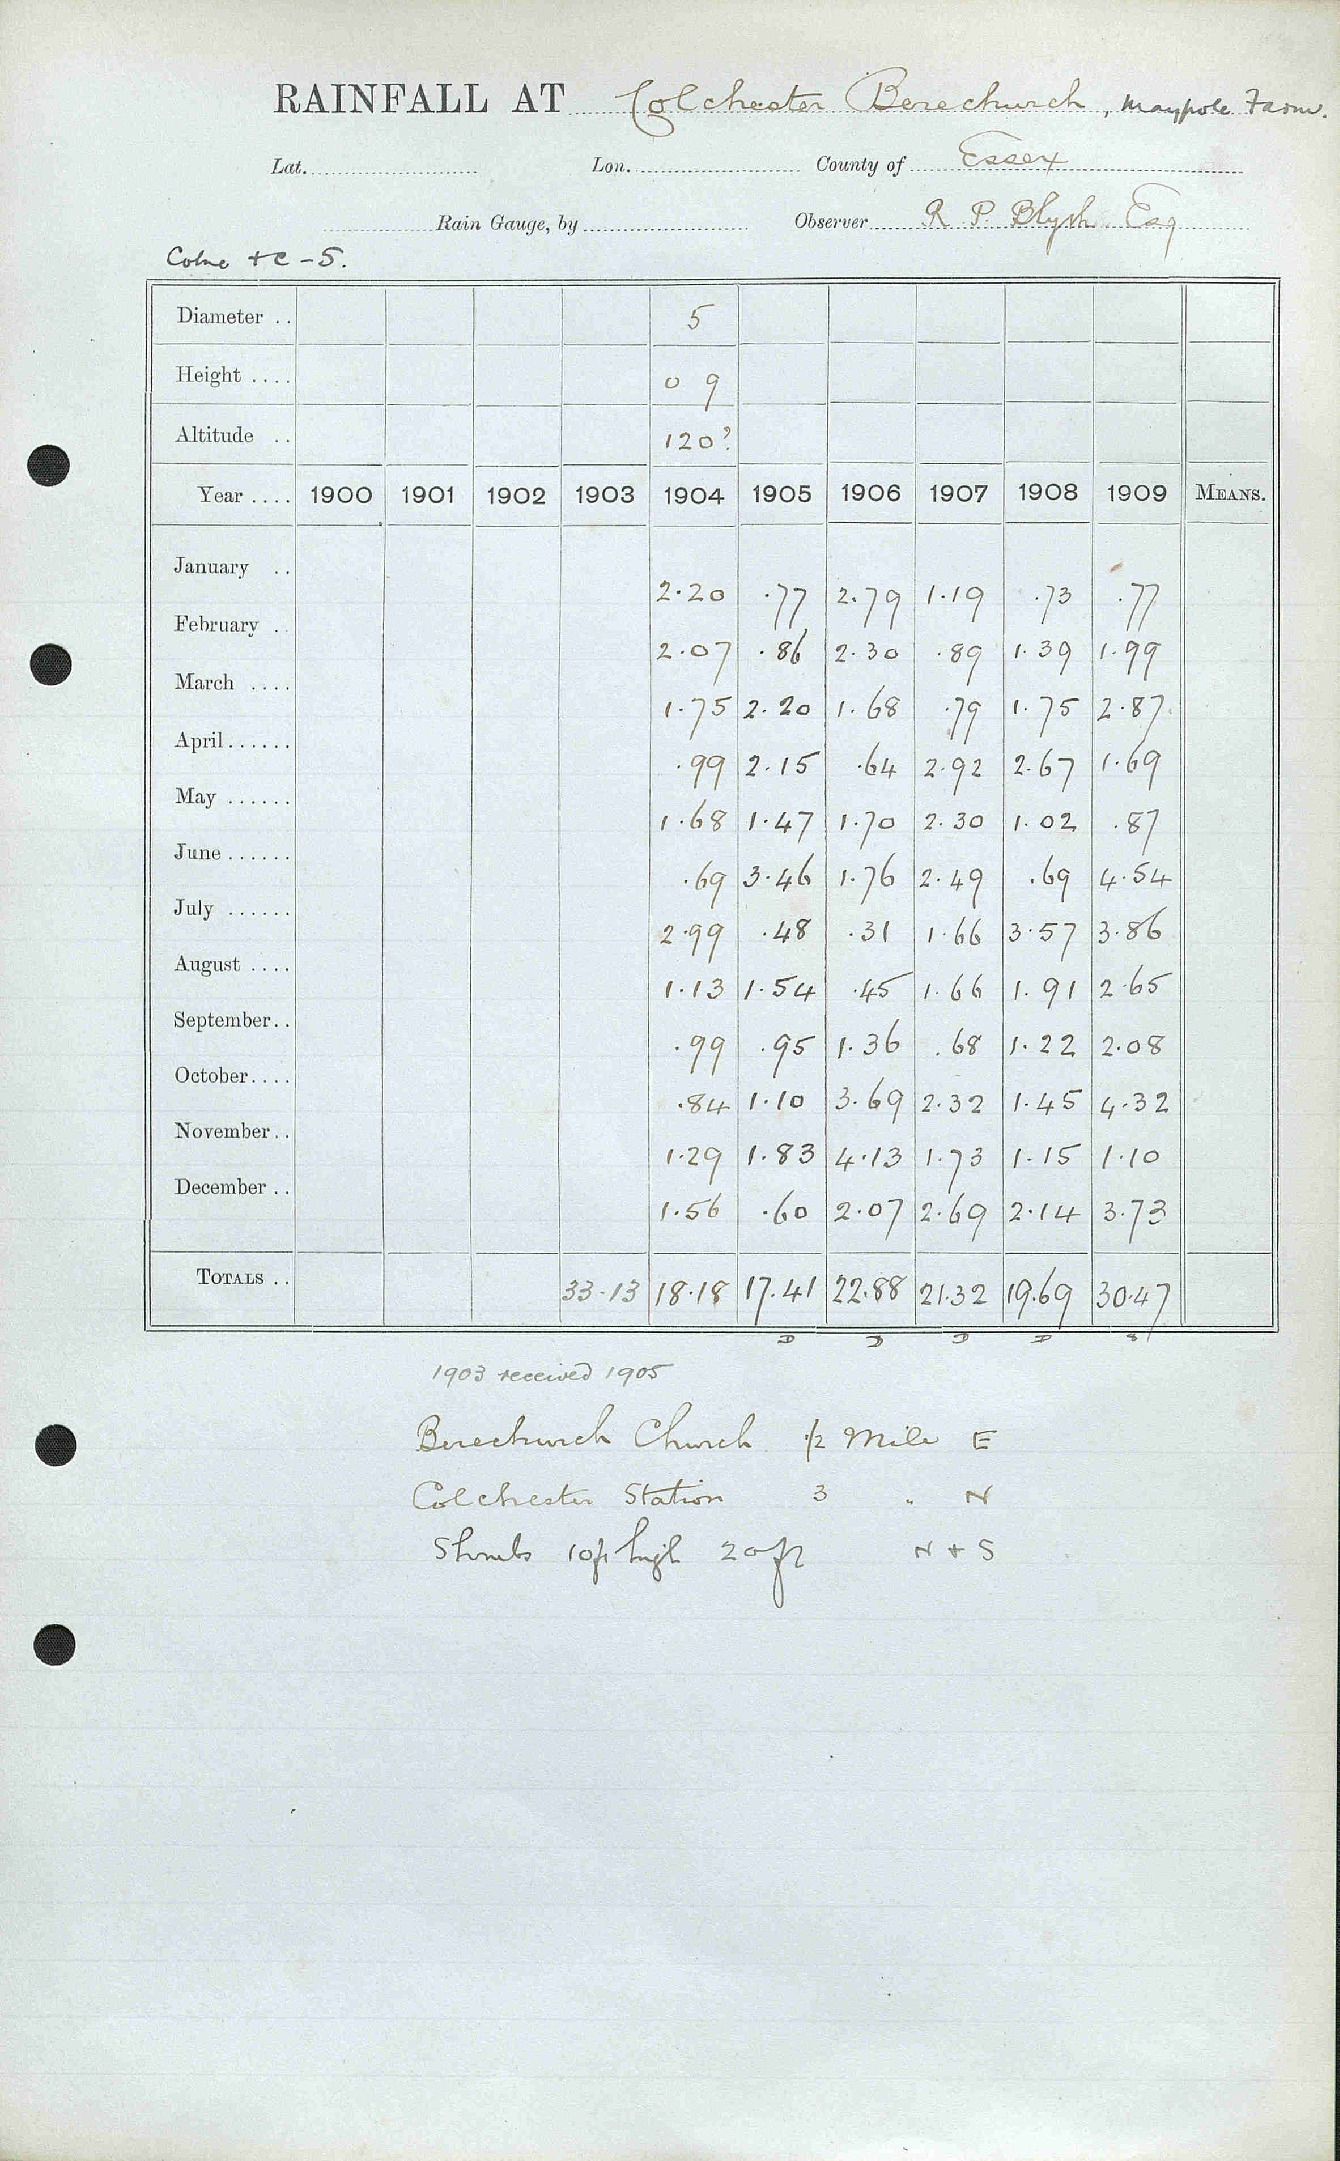 RAINFALL AT Colchester Berechurch, Maypole Farm.
Lat. Lon. County of Essex
Rain Gauge, by Observer R P Blyth Esq
Colne &c - 5.
Diameter .. 5
Height .... 0 9
Altitude .. 120?
Year .... 1900 1901 1902 1903 1904 1905 1906 1907 1908 1909 MEANS.
January .. 2.20 .77 2.79 1.19 .73 .77
February .. 2.07 .86 2.30 .89 1.39 1.99
March .... 1.75 2.20 1.68 .79 1.75 2.87
April...... .99 2.15 .64 2.92 2.67 1.69
May ...... 1.68 1.47 1.70 2.30 1.02 .87
June...... .69 3.46 1.76 2.49 .69 4.54
July ...... 2.99 .48 .31 1.66 3.57 3.86
August .... 1.13 1.54 .45 1.66 1.91 2.65
September.. .99 .95 1.36 .68 1.22 2.08
October.... .84 1.10 3.69 2.32 1.45 4.32
November.. 1.29 1.83 4.13 1.73 1.15 1.10
December .. 1.56 .60 2.07 2.69 2.14 3.73
TOTALS .. 33.13 18.18 17.41 22.88 21.32 19.69 30.47
D D D D 8
1903 received 1905
Berechurch Church ½ Mile E
Colchester Station 3 " N
Shrubs 10ft high 20ft N + S